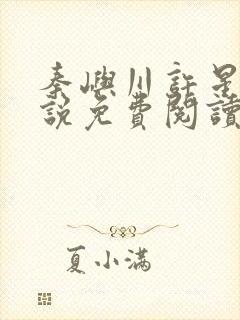 秦嶼川許星
說免費閱讀
夏小满